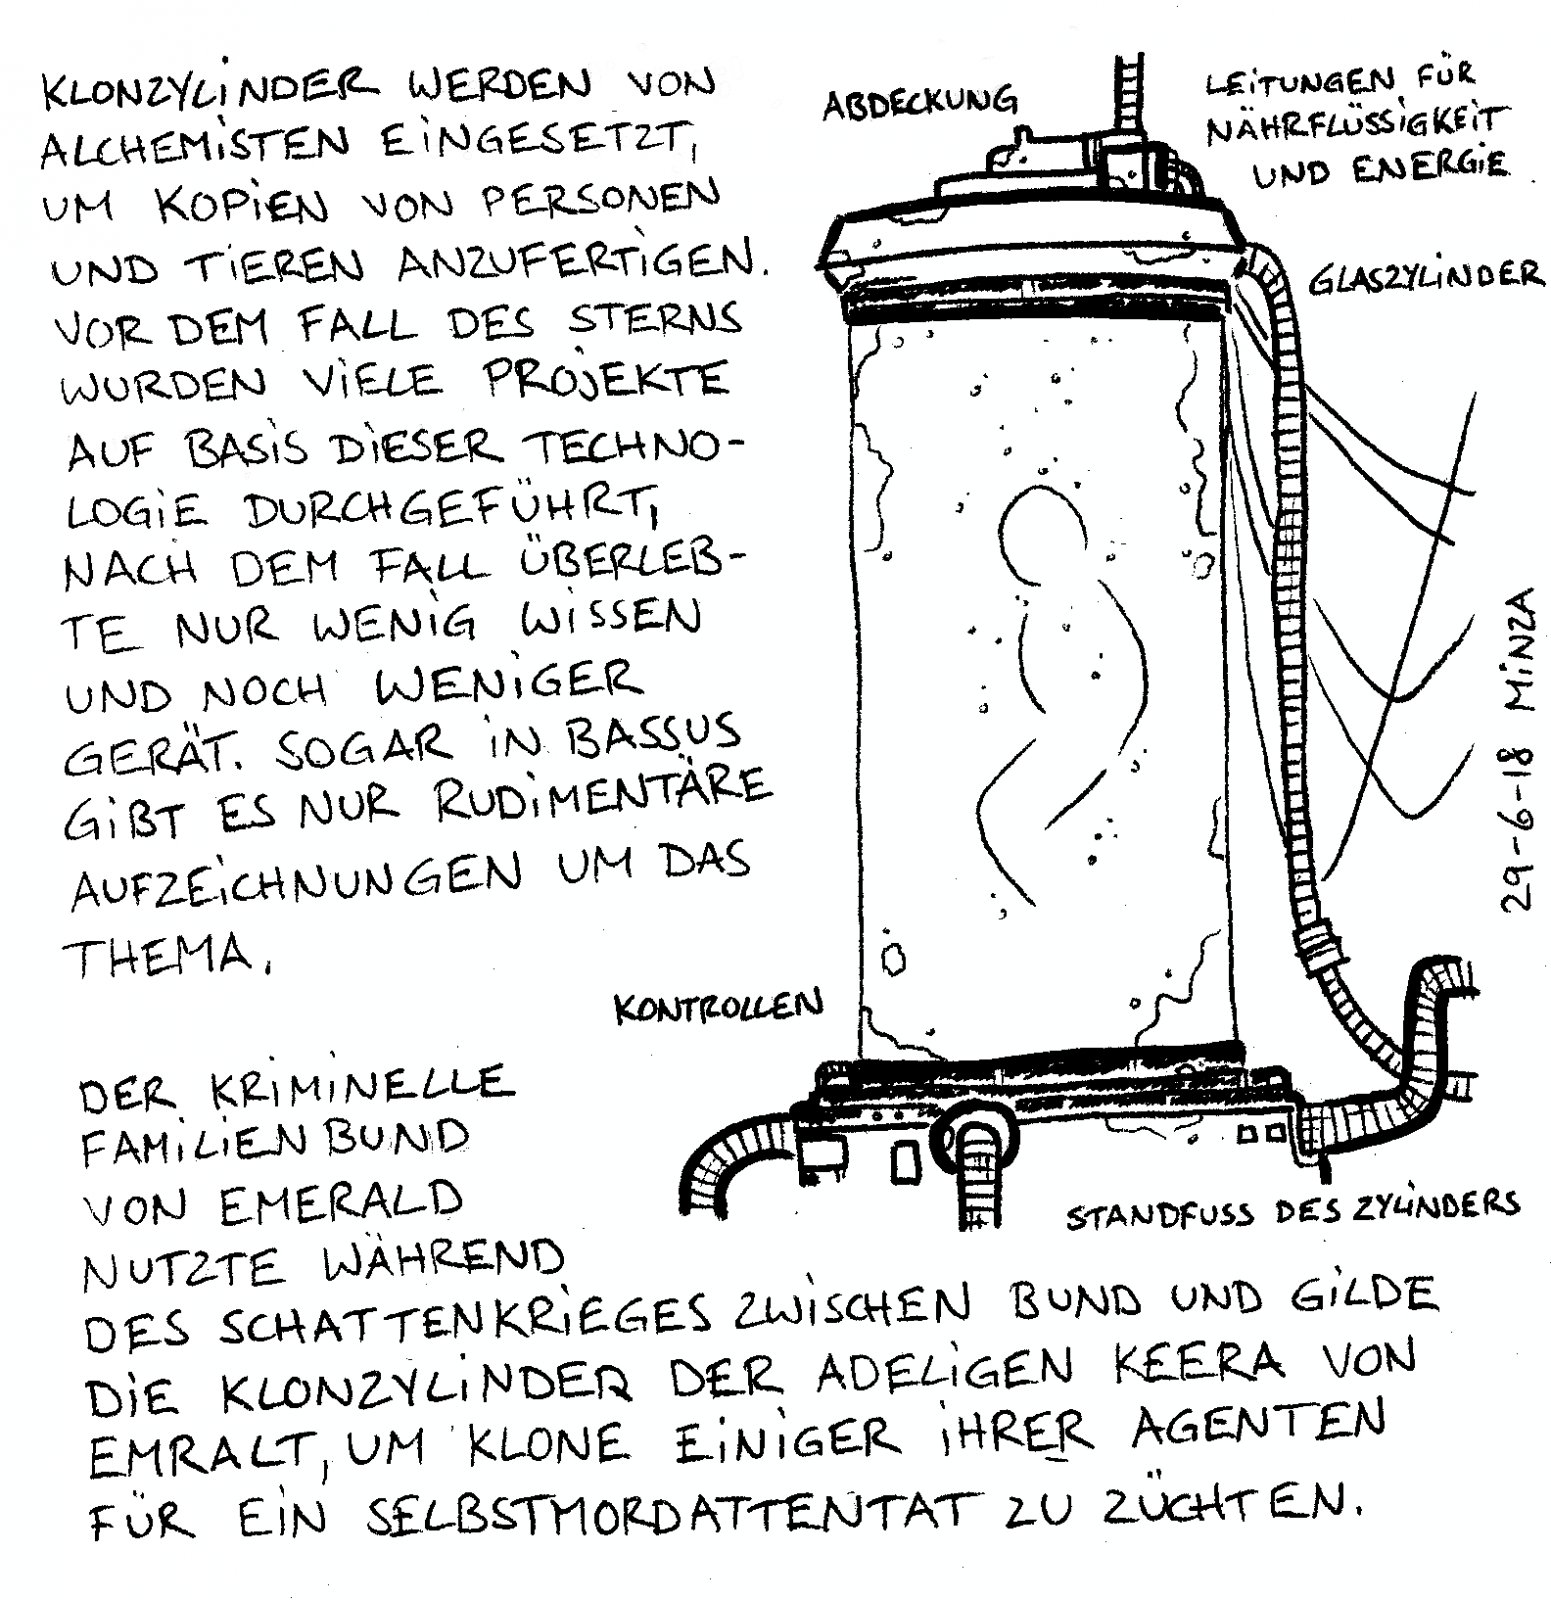 KLONZYLINDER WERDEN VON
ALCHEMISTEN EINGESETZT,
UM KOPIEN VON PERSONEN
UND TIEREN ANZUFERTIGEN.
VOR DEM FALL DES STERNS
WURDEN VIELE PROJEKTE
AUF BASIS DIESER TECHNO-
LOGIE DURCHGEFÜHRT,
NACH DEM FALL ÜBERLEB-
TE NUR WENIG WISSEN
UND NOCH WENIGER
GERÄT. SOGAR IN BASSUS
GIBT ES NUR RUDIMENTÄRE
AUFZEICHNUNGEN UM DAS
THEMA.
DER KRIMINELLE
FAMILIENBUND
VON EMERALD
NUTZTE WÄHREND
DES SCHATTENKRIEGES ZWISCHEN BUND UND GILDE
DIE KLONZYLINDER DER ADELIGEN KEERA VON
EMRALT, UM KLONE EINIGER IHRER AGENTEN
FÜR EIN SELBSTMORDATTENTAT ZU ZÜCHTEN.
ABDECKUNG
LEITUNGEN FÜR
NÄHRFLÜSSIGKEIT
UND ENERGIE
GLASZYLINDER
KONTROLLEN
STANDFUSS DES ZYLINDERS
29-6-18 MINZA